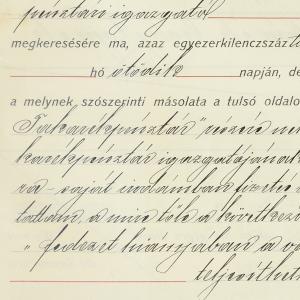 pénztári igazgató
megkeresésére ma, azaz egyezerkilenczszázt
hó ötödik napján, de
a melynek szószerinti másolata a tulsó oldalo
Takarékpénztár" részére
karékpénztár igazgatójának
ra - saját irodámban
tattam, a mire tőle a következő
„fedezet hiányjában a
teljesíthet